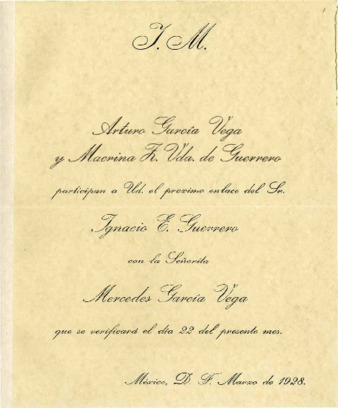 I. M.
Arturo García Vega
y Macrina H. Vda. de Guerrero
participan a Ud. el proximo enlace del Sr.
Ignacio E. Guerrero
con la Señorita
Mercedes García Vega
que se verificará el día 22 del presente mes.
México, D. F. Marzo de 1928.